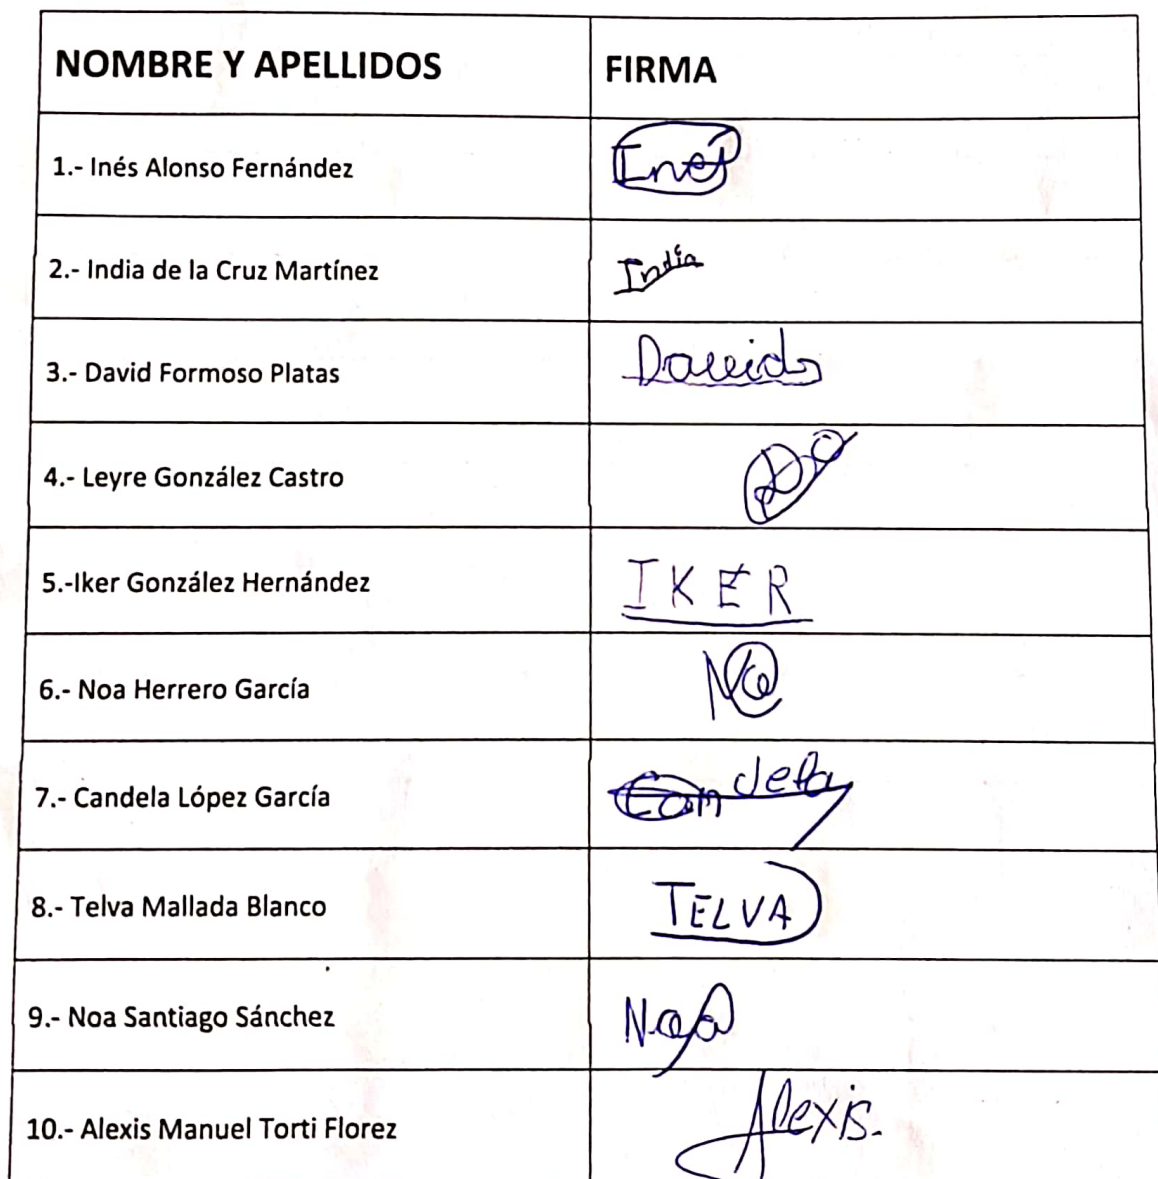 NOMBRE Y APELLIDOS FIRMA
1.- Inés Alonso Fernández Inés
2.- India de la Cruz Martínez India
3.- David Formoso Platas David
4.- Leyre González Castro
5.-Iker González Hernández IKER
6.- Noa Herrero García
7.- Candela López García Candela
8.- Telva Mallada Blanco TELVA
9.- Noa Santiago Sánchez Noa
10.- Alexis Manuel Torti Florez Alexis.